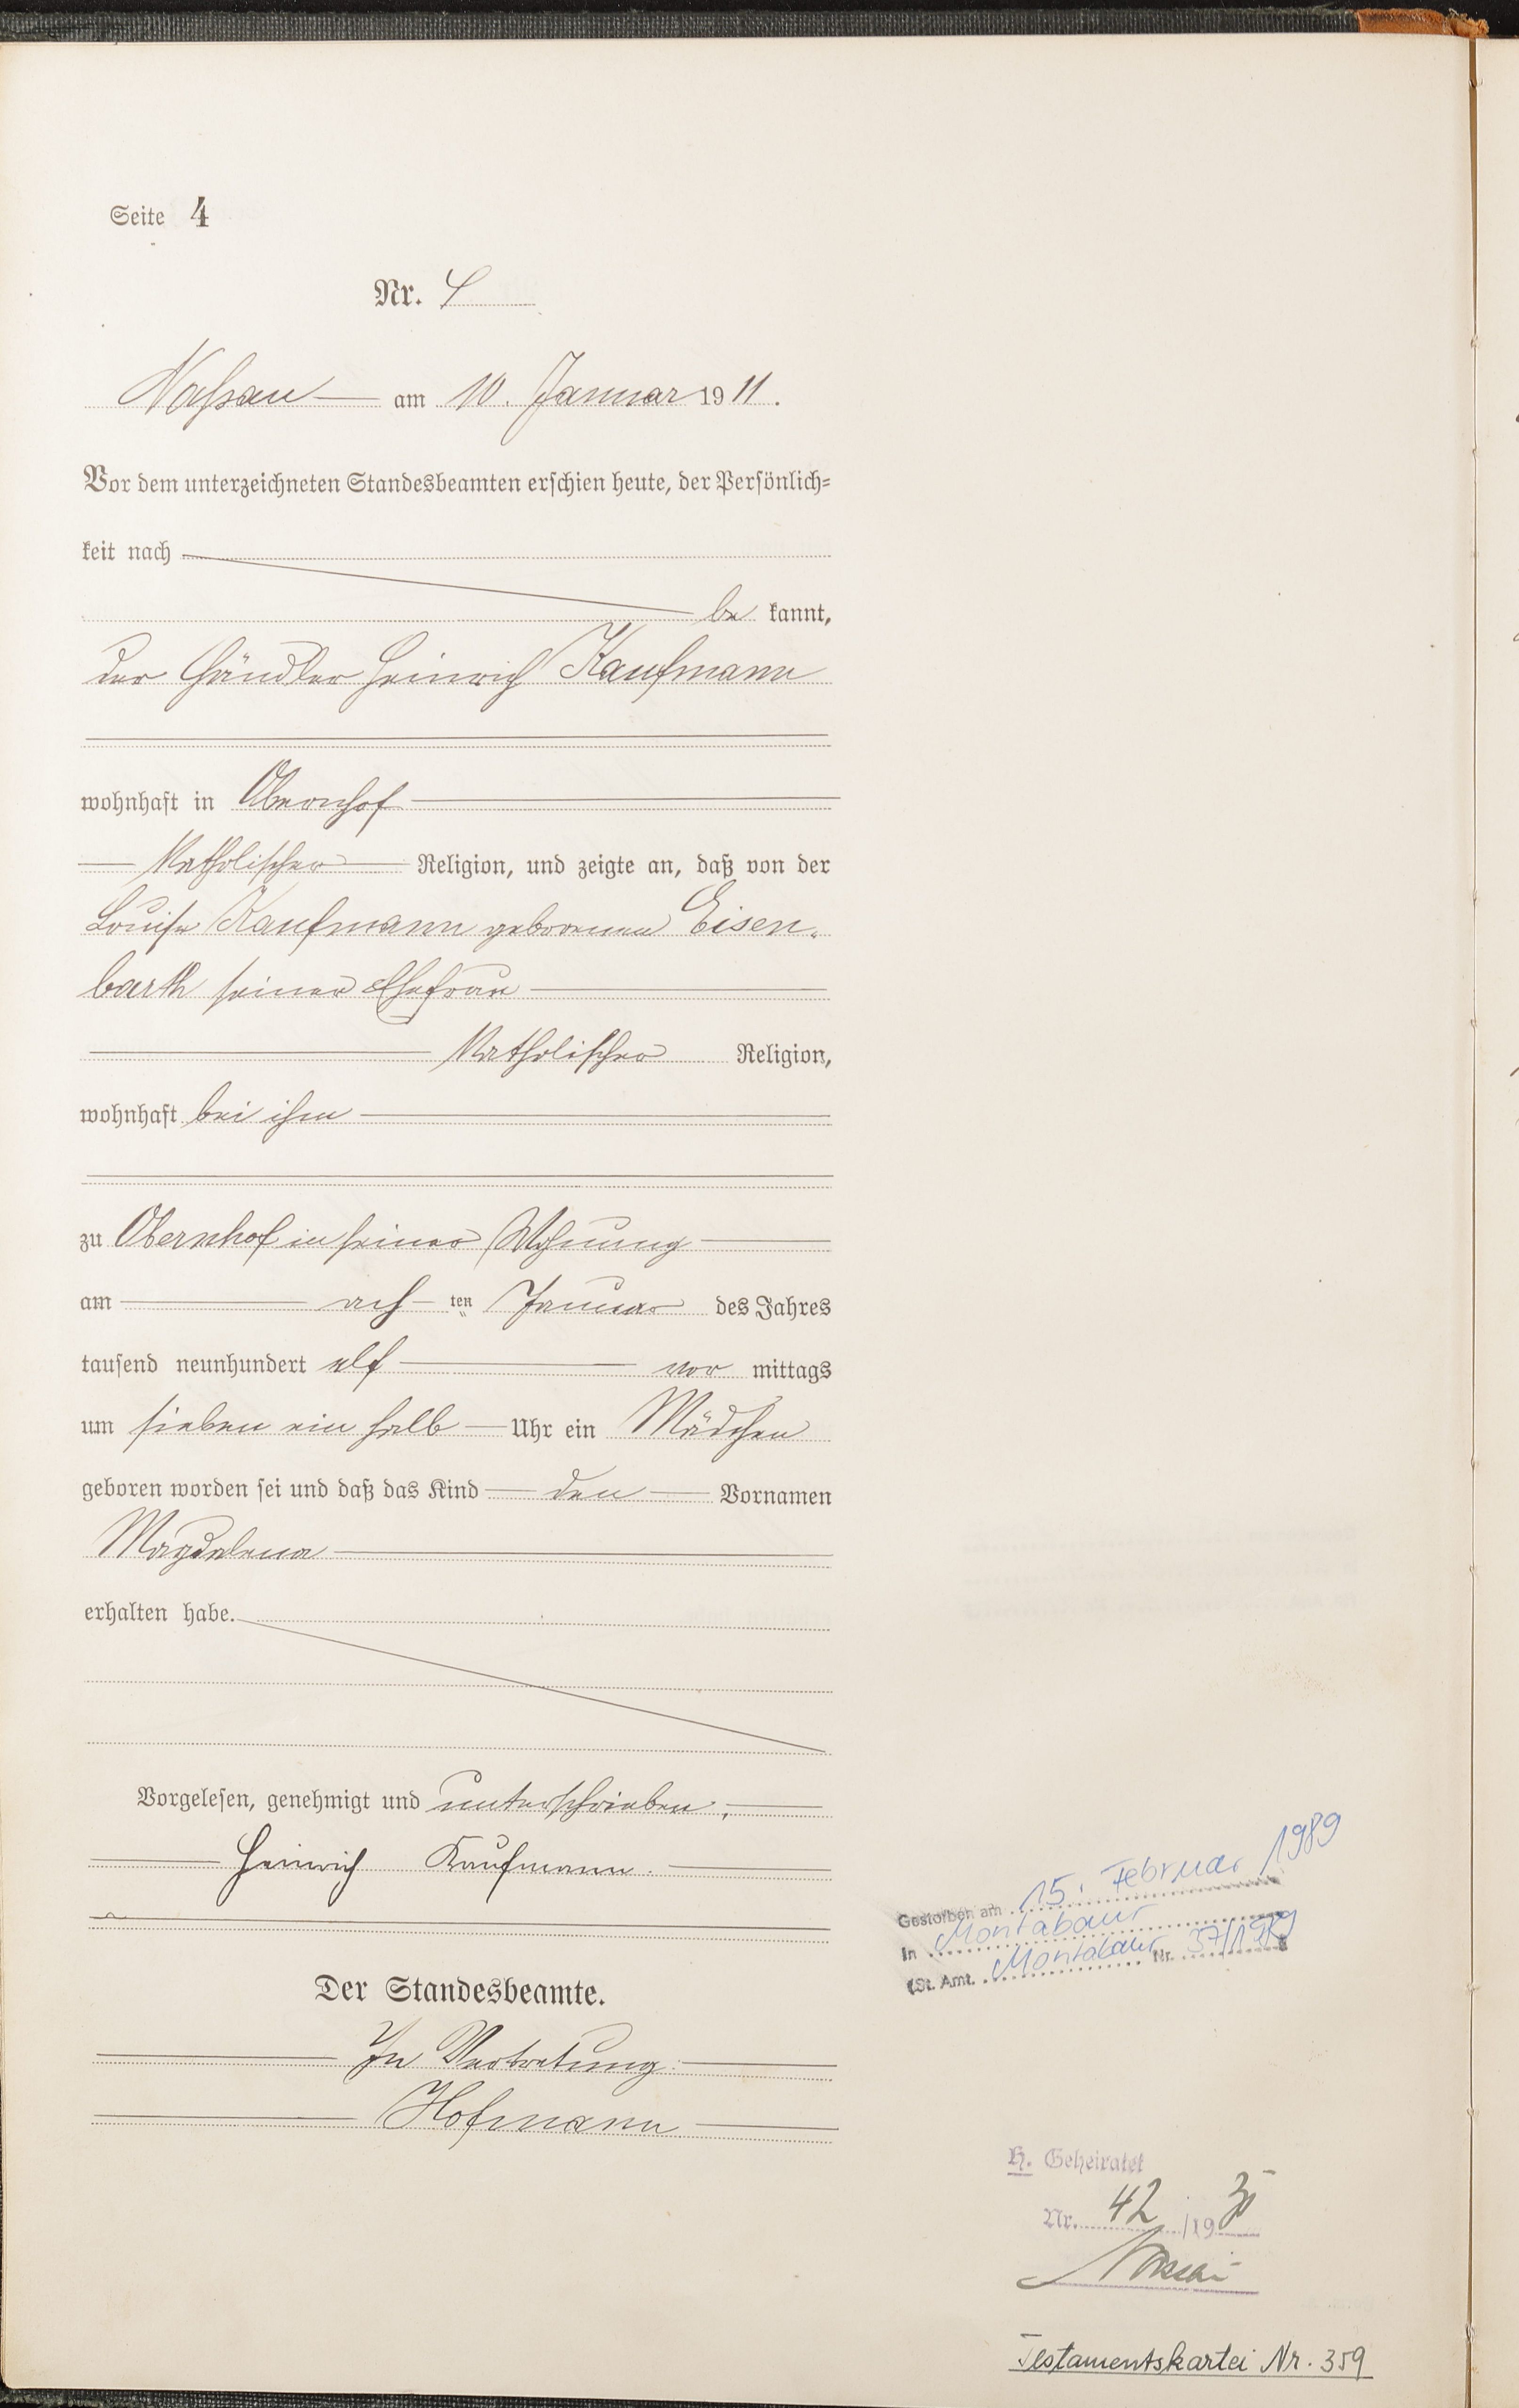 Seite 4
Nr. 4
Nassau am 10. Januar 1911.
Vor dem unterzeichneten Standesbeamten erschien heute, der Persönlich=
keit nach
be kannt,
der Händler Heinrich Kaufmann
wohnhaft in Obernhof
katholischer Religion, und zeigte an, daß von der
Louise Kaufmann geborenen Eisen=
barth seiner Ehefrau
katholischer Religion,
wohnhaft bei ihm
zu Obernhof in seiner Wohnung
am ach ten Januar des Jahres
tausend neunhundert elf vor mittags
um sieben ein halb Uhr ein Mädchen
geboren worden sei und daß das Kind den Vornamen
Magdalena
erhalten habe.
Vorgelesen, genehmigt und unterschrieben.
Heinrich Kaufmann.
Der Standesbeamte.
In Vertretung.
Hofmann
Gestorben am 15. Februar 1989
in Montabaur
(St. Amt. Montabaur Nr. 37/1989
H. Geheiratet
Nr. 42 /19
Nassau
Testamentskartei Nr. 359